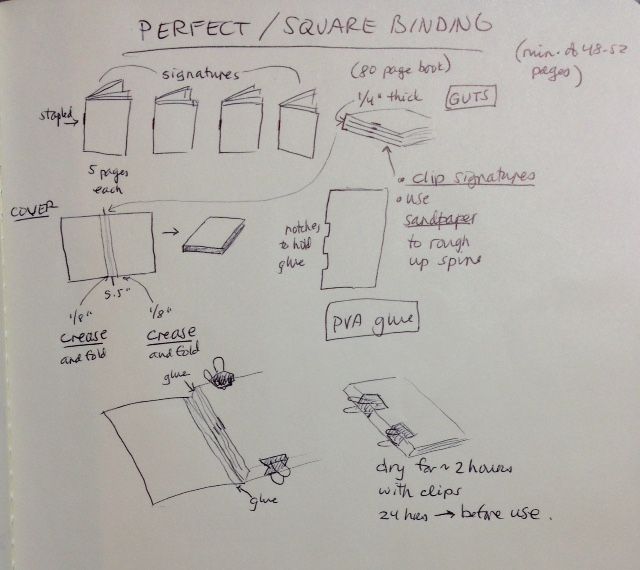 PERFECT / SQUARE BINDING
(min. of 48-52
pages)
signatures
(80 page book)
1/4" thick
GUTS
stapled
5 pages
each
• clip signatures
• use
sandpaper
to rough
up spine
COVER
notches
to hold
glue
5.5"
1/8"
crease
and fold
1/8"
crease
and fold
PVA glue
glue
glue
dry for ~ 2 hours
with clips
24 hours → before use.